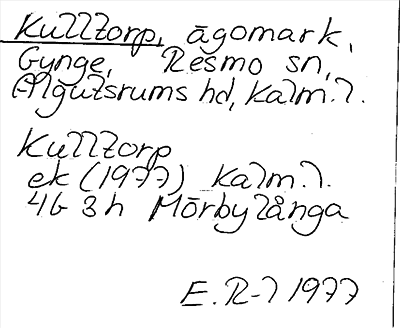 Kulltorp, ägomark,
Gynge, Resmo sn,
Algutsrums hd, Kalm. l.
Kulltorp
ek (1977) Kalm. l.
4G 3h Mörbylånga
E.R-l 1977